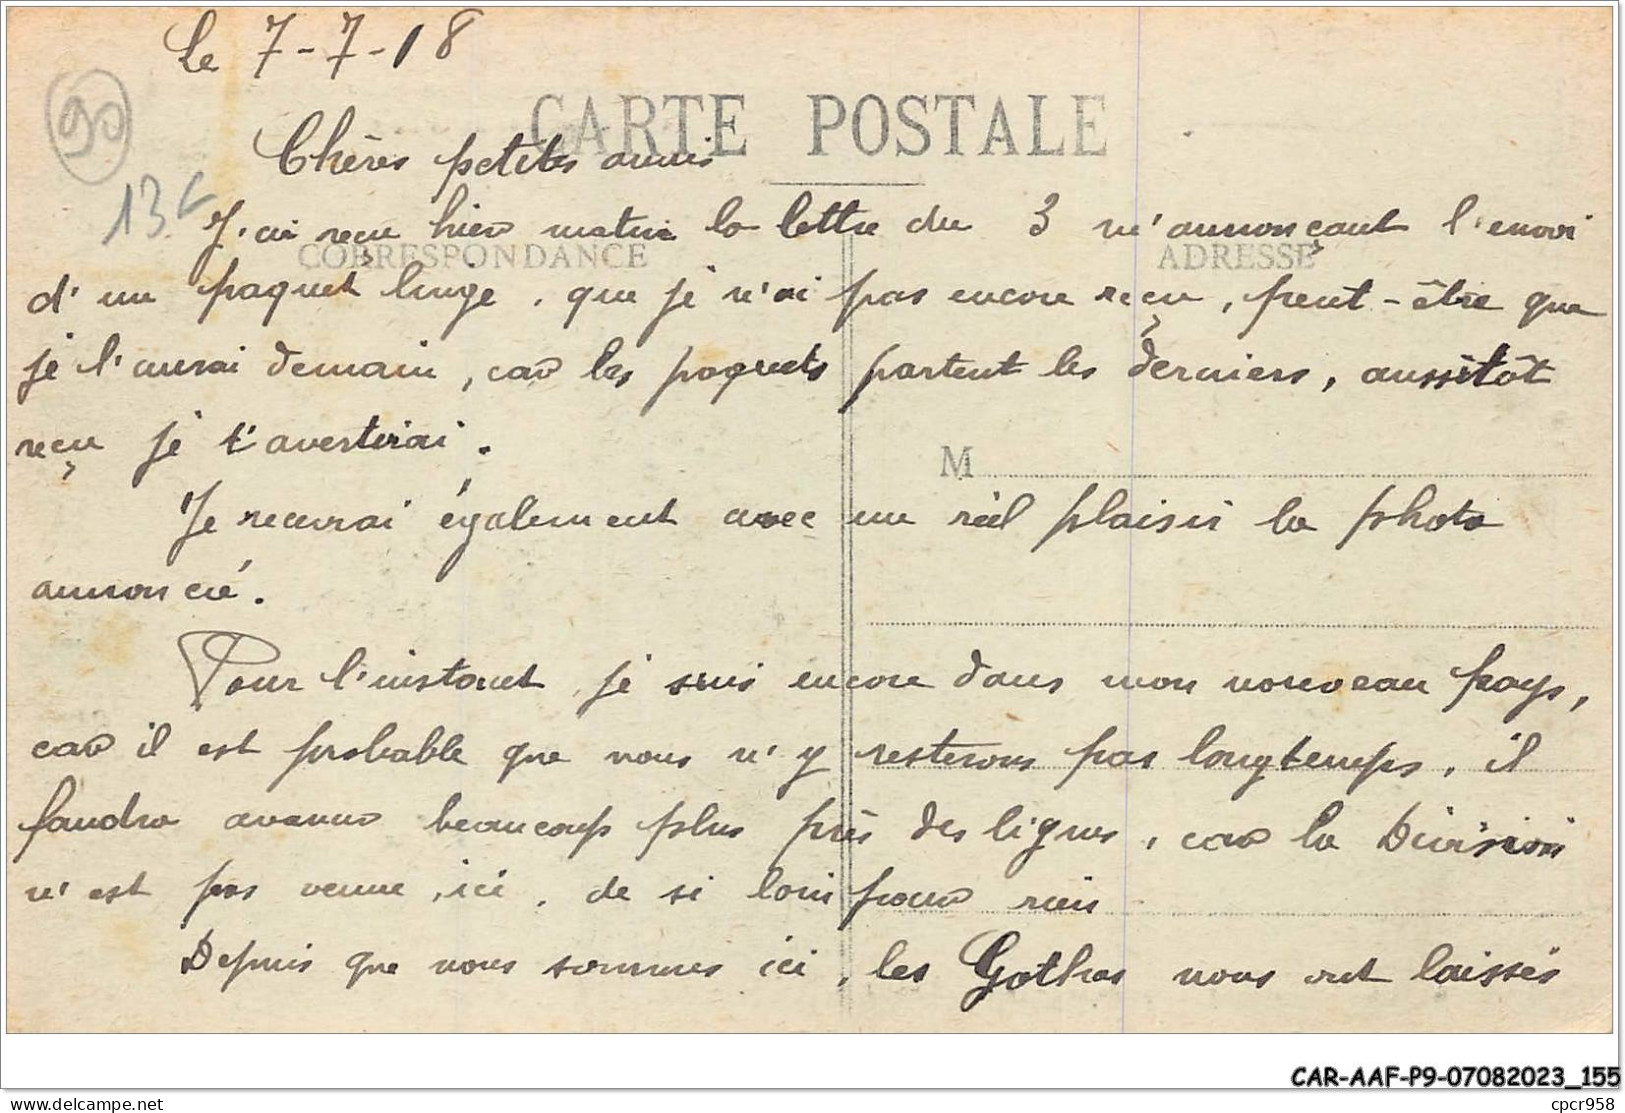 Le 7-7-18
90
CARTE POSTALE
Chères petites amis
13 €
J'ai reçu hier matin la lettre du 3 m'annonçant l'envoi
CORRESPONDANCE
ADRESSE
d'un paquet linge, que je n'ai pas encore reçu, peut-être que
je l'aurai demain, car les paquets partent les derniers, aussitôt
reçu je t'avertirai.
M
Je recevrai également avec un réel plaisir la photo
annoncé.
Pour l'instant, je suis encore dans mon nouveau pays,
car il est probable que nous n'y resterons pas longtemps, il
faudra avancer beaucoup plus près des lignes, car la Division
n'est pas venue ici, de si loin pour rien
Depuis que nous sommes ici, les Gothas nous ont laissés
CAR-AAF-P9-07082023_155
www.delcampe.net
cpcr958